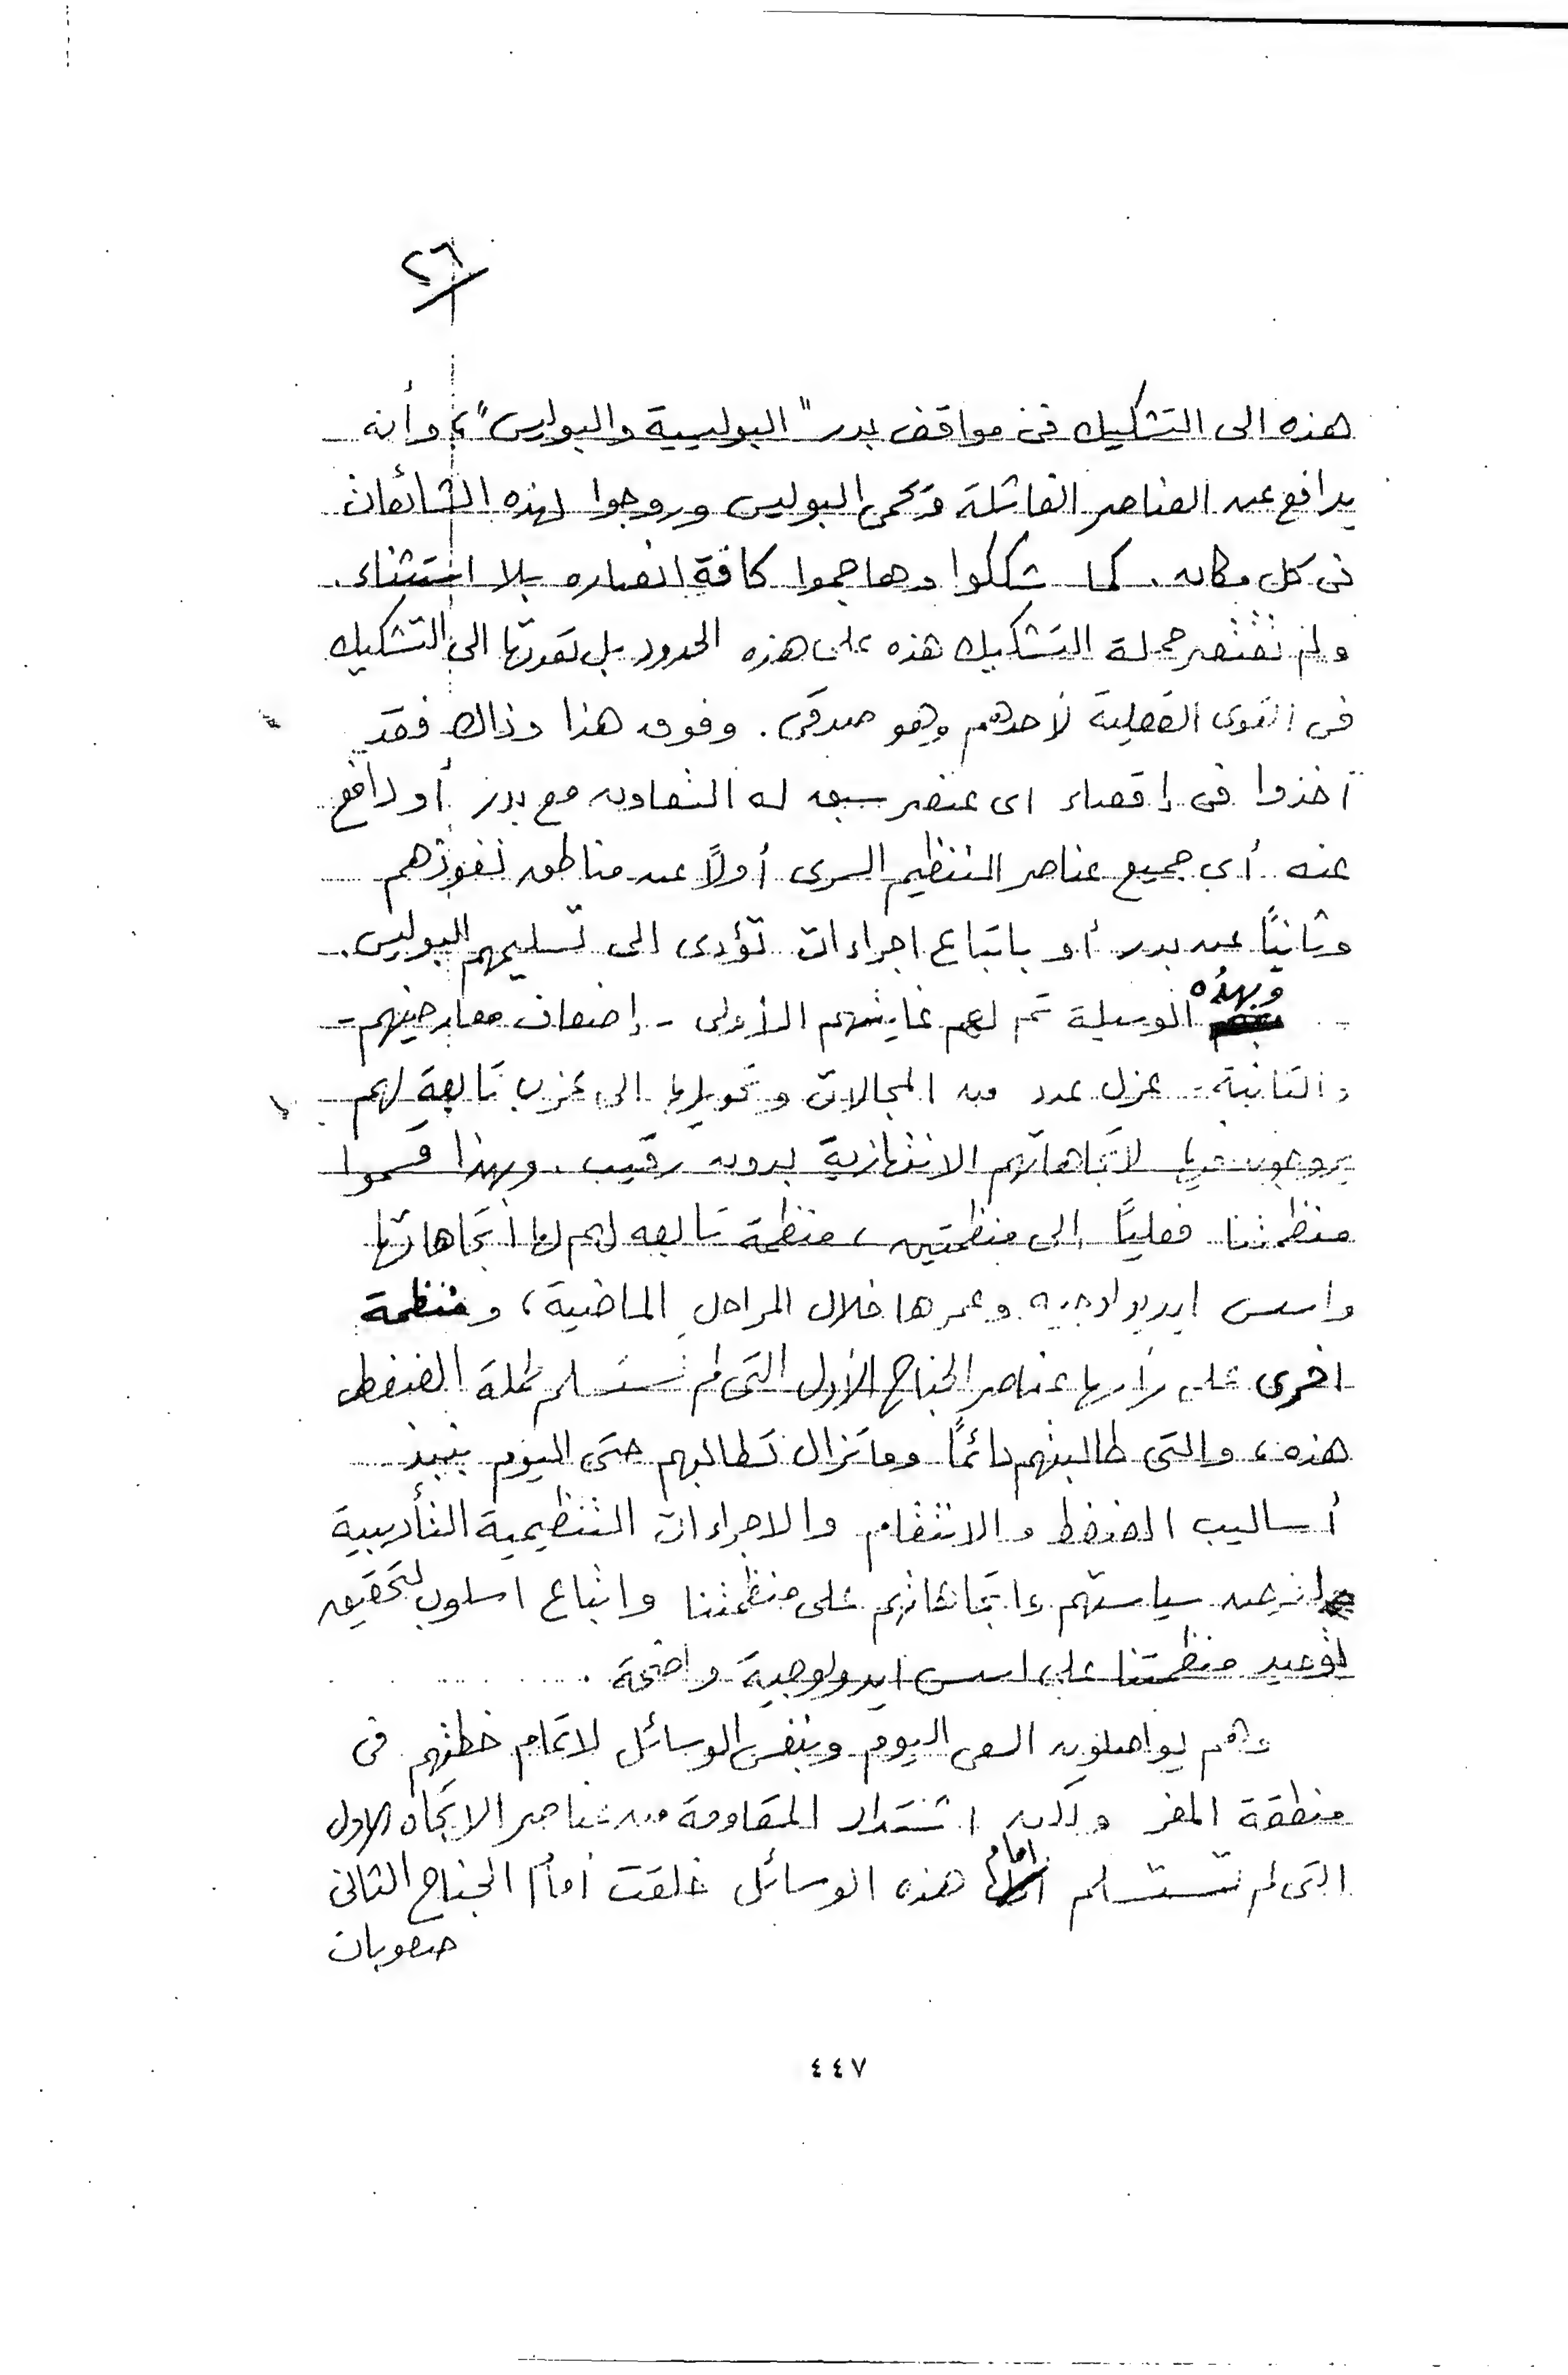 ٢٦
هذه الى التشكيك فى مواقف بدر "البوليسية والبوليس"، وأنه
يدافع عن العناصر الفاشلة ويحمى البوليس وروجوا لهذه الشائعات
فى كل مكان. كما شككوا وهاجموا كافة انصاره بلا استثناء.
ولم تقتصر حملة التشكيك هذه على هذه الحدود بل تعدتها الى التشكيك
فى القوى العقلية لأحدهم وهو صدقى. وفوق هذا وذاك فقد
أخذوا فى إقصاء اى عنصر سبق له التعاون مع بدر أو دافع
عنه أى جميع عناصر التنظيم السرى أولاً عن مناطق نفوذهم
وثانياً عن بدر أو باتباع اجراءات تؤدى الى تسليمهم البوليس.
وبهذه الوسيلة تم لهم غايتهم الأولى - إضعاف معارضيهم -
والثانية - عزل عدد من المجالات وتحويلها الى عزب تابعة لهم
يروجون فيها لاتجاهاتهم الانتهازية بدون رقيب. وبهذا قسموا
منظمتنا فعلياً الى منظمتين، منظمة تابعه لهم لها اتجاهاتها
واسس ايديولوجيه وعمرها خلال المراحل الماضية، ومنظمة
اخرى على رأسها عناصر الجناح الأول التى لم تستسلم لحملة الضغط
هذه، والتى طالبتهم دائماً وما تزال تطالبهم حتى اليوم بنبذ
أساليب الضغط والانتقام والاجراءات التنظيمية التأديبية
لفرض سياستهم واتجاهاتهم على منظمتنا واتباع اسلوب لتحقيق
توحيد منظمتنا على اسس ايدولوجية واضحة.
وهم يواصلون السعى اليوم وبنفس الوسائل لاتمام خطتهم فى
منطقة المفر ولكن اشتداد المقاومة من عناصر الاتجاه الاول
التى لم تستسلم امام هذه الوسائل خلقت أمام الجناح الثانى
صعوبات
٤٤٧